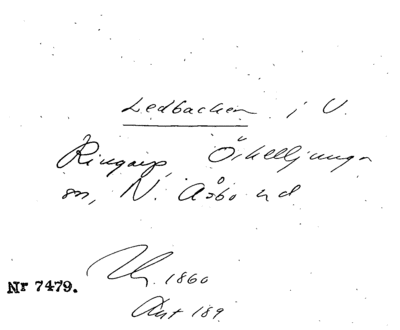 Ledbacken i V.
Ringarp, Örkelljunga
sn, N. Åsbo hd
1860
Nr 7479.
Ant 189